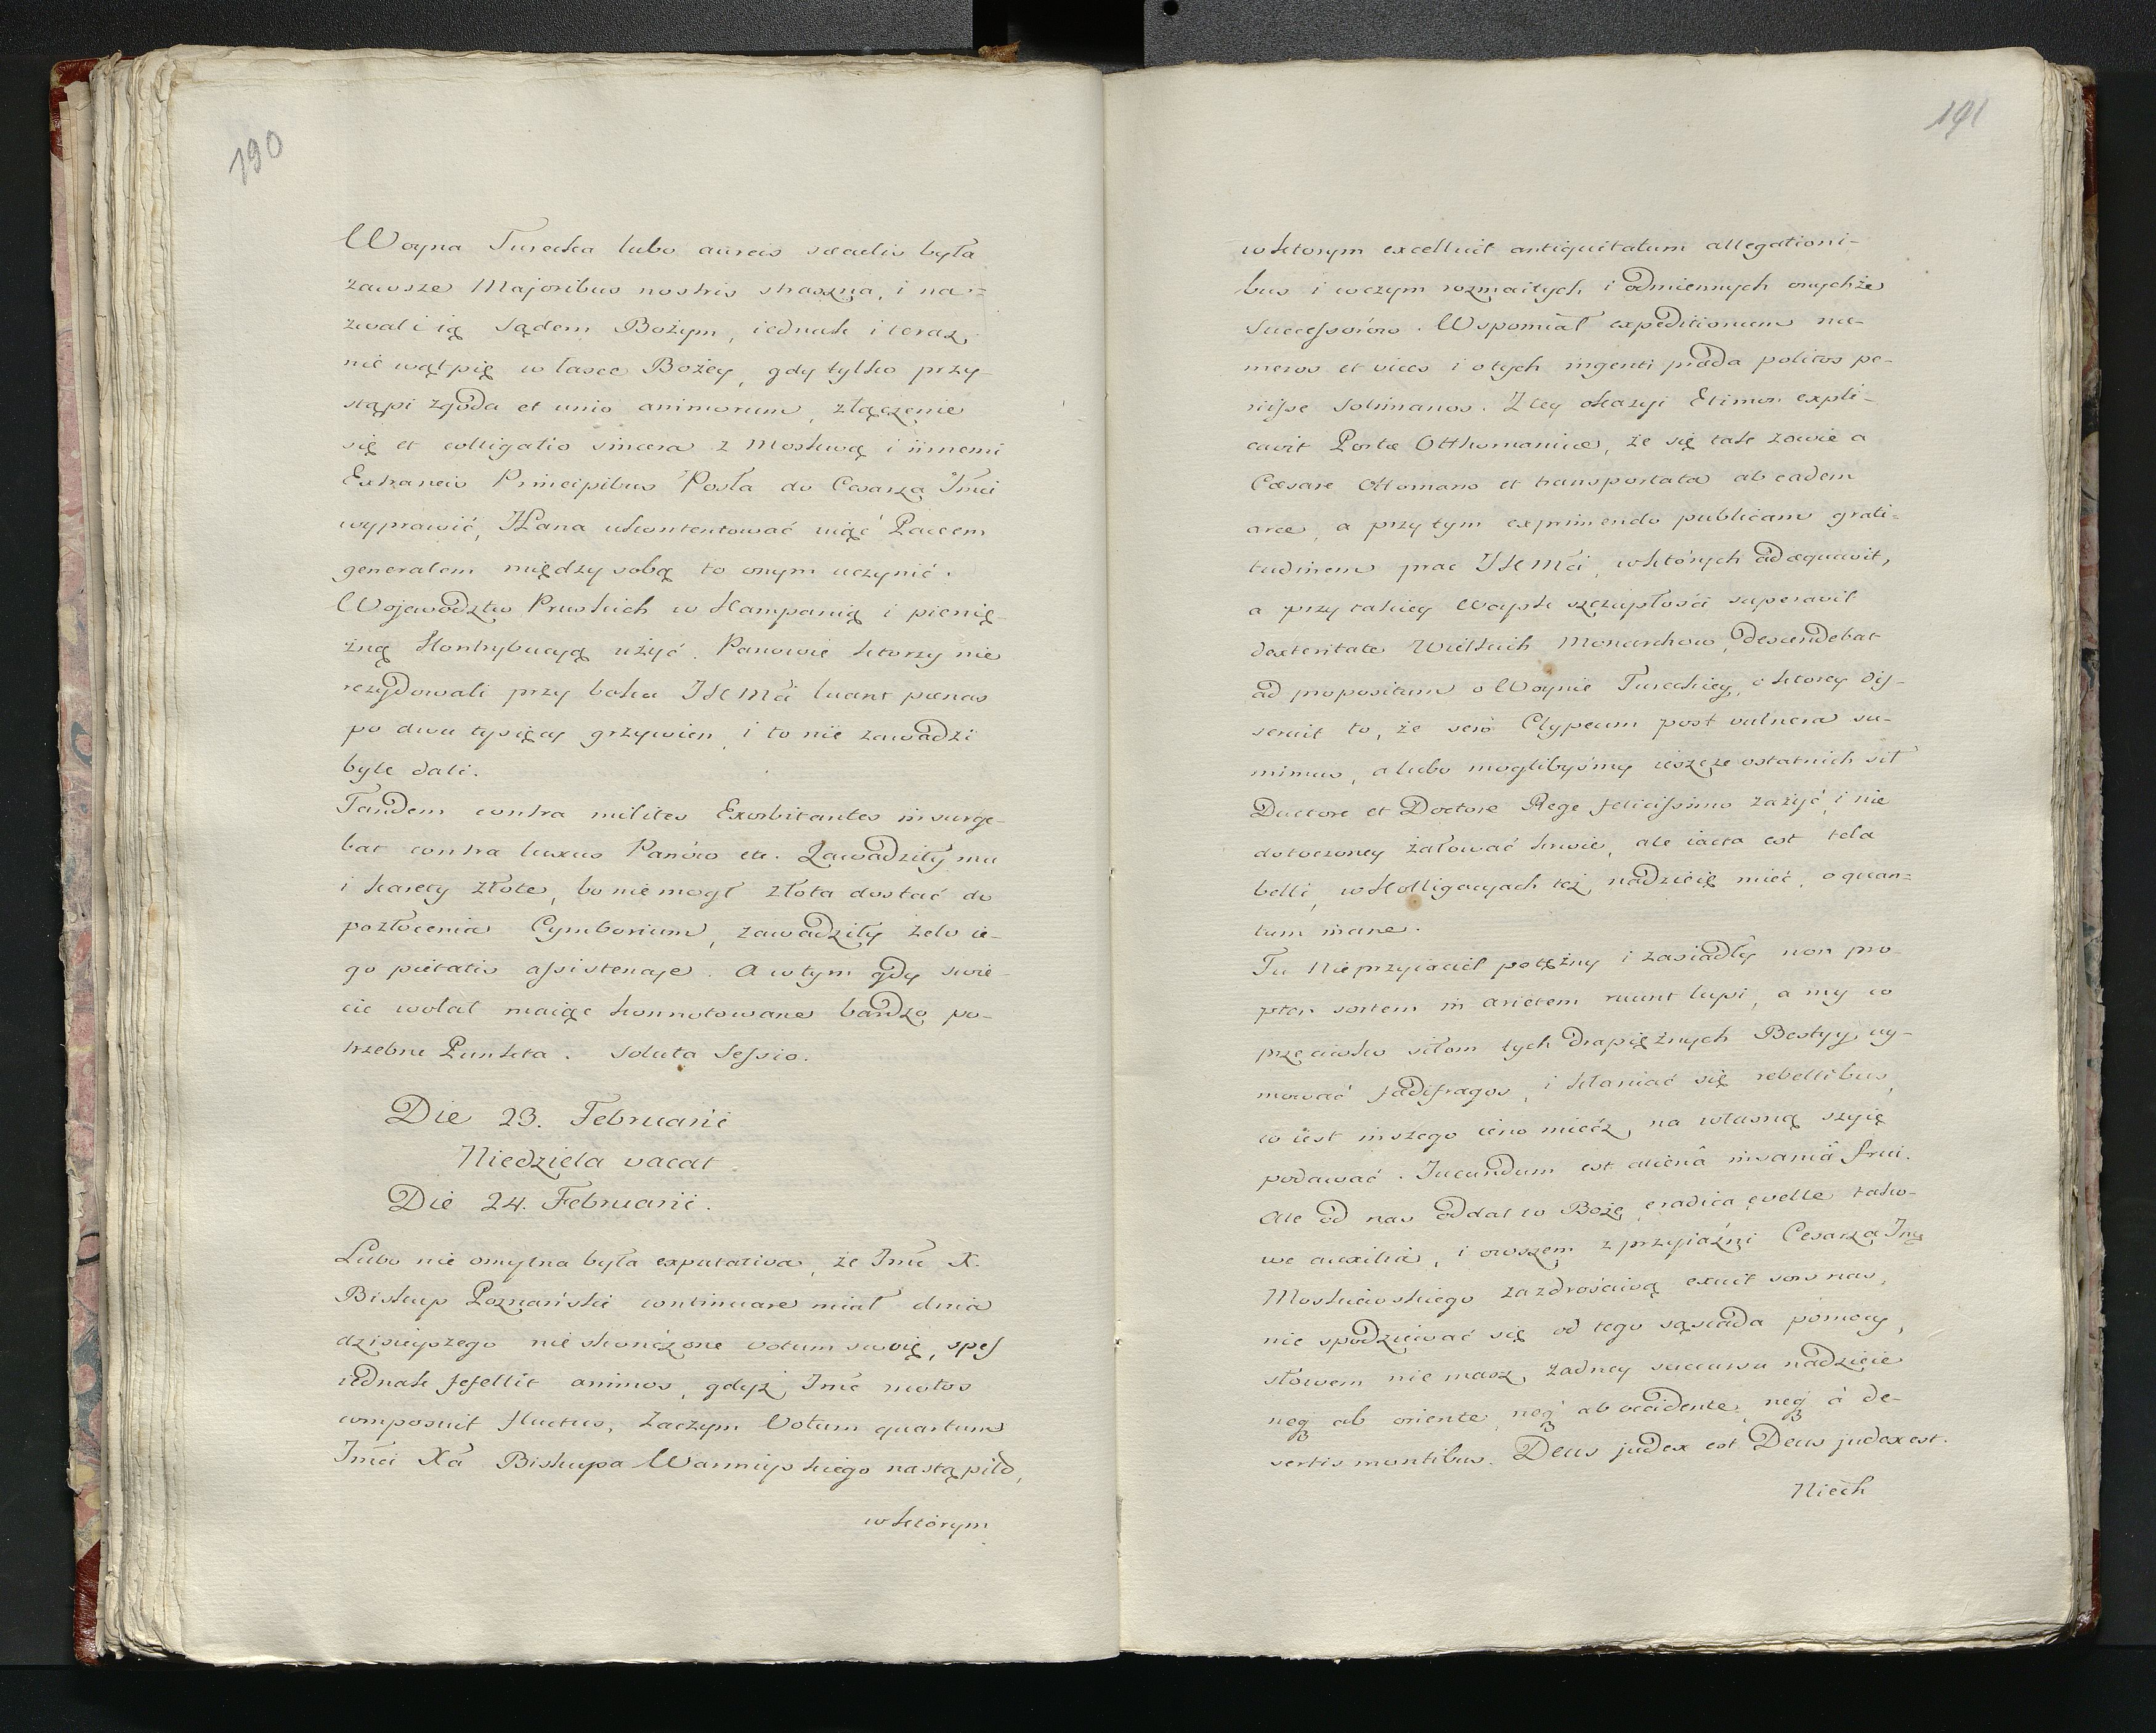 190
Woyna Turecka lubo aureis sæculis była
zawsze Majoribus nostris straszna, i na-
zwali ią Sądem Bożym, iednak i teraz
nie wątpię w łasce Bożey, gdy tylko przy-
stąpi zgoda et unio animorum, złączenie
się et colligatio sincera z Moskwą i innemi
Extraneis Principibus Posła do Cesarza Jmci
wyprawić, Hana ukontentować uiąć Pacem
generalem między sobą to onym uczynić.
Wojewodztw Pruskich w Kampanią i pienię-
żną Kontrybucyą użyć. Panowie ktorzy nie
rezydowali przy boku JKMći luant pœnas
po dwu tysięcy grzywien, i to nie zawadzi
byle dali.
Tandem contra milites Exorbitantes insurge-
bat contra luxus Panów etc. Zawadziły mu
i karety złote, bo nie mogł złota dostać do
pozłocenia Cymborium, zawadziły zelo ie-
go pietatis assistencye. A w tym gdy swie-
cie wołał maiąc konnotowane bardzo po-
trzebne Punkta. Soluta Sessio.
Die 23. Februarii
Niedziela vacat
Die 24. Februarii.
Lubo nie omylna była exputativa, że Jmć X.
Biskup Poznański continuare miał dnia
dzisieyszego nie skończone votum swoię, spes
iednak fefellit animos, gdyż Jmć motos
composuit fluctus, Zaczym Votum quartum
Jmći Xa Biskupa Warmiyskiego nastąpiło,
w którym
191
w ktorym excelluit antiquitatum allegationi-
bus i w czym rozmaitych i odmiennych onychże
Successorów. Wspomiał expeditionum nu-
meros et vices i o tych ingenti præda politos pe-
riisse Solimanos. Z tey okazyi Etimon expli-
cavit Portæ Otthomanicæ, że się tak zowie a
Cæsare Ottomano et transportata ab eadem
arce, a przy tym exprimendo publicam grati-
tudinem prac JKMći, w których adæquavit,
a przy takiey Woysk szczupłości superavit
dexteritate Wielkich Monarchow, descendebat
ad propositum o Woynie Tureckiey, o ktorey dis-
seruit to, że serò Clypeum post vulnera su-
mimus, a lubo moglibyśmy ieszcze ostatnich sił
Ductore et Doctore Rege felicissimo zażyć, i nie
dotoczoney żałować krwie, ale iacta est tela
belli, w Kolligacyach też nadzieię mieć, o quan-
tum inane.
Tu Nieprzyiaciel potężny i zasiadły non pro-
pter sortem in arietem ruunt lupi, a my co
przeciwko siłom tych drapieżnych Bestyy uy-
mować fœdifragos, i kłaniać się rebellibus,
co iest inszego ieno miecz, na własną szyię
podawać. Jucundum est alienâ insaniâ frui.
Ale od nas oddal to Boże, eradica, evelle tako-
we auxilia, i owszem z przyiaźni Cesarza Jmć
Moskiewskiego zazdrościwą exuit sors nas,
nie spodziewać się od tego sąsiada pomocy,
słowem nie masz, żadney succursu nadzieie
neq3 ab oriente, neq3 ab occidente, neq3 à de-
sertis montibus. Deus judex est Deus judex est.
Niech